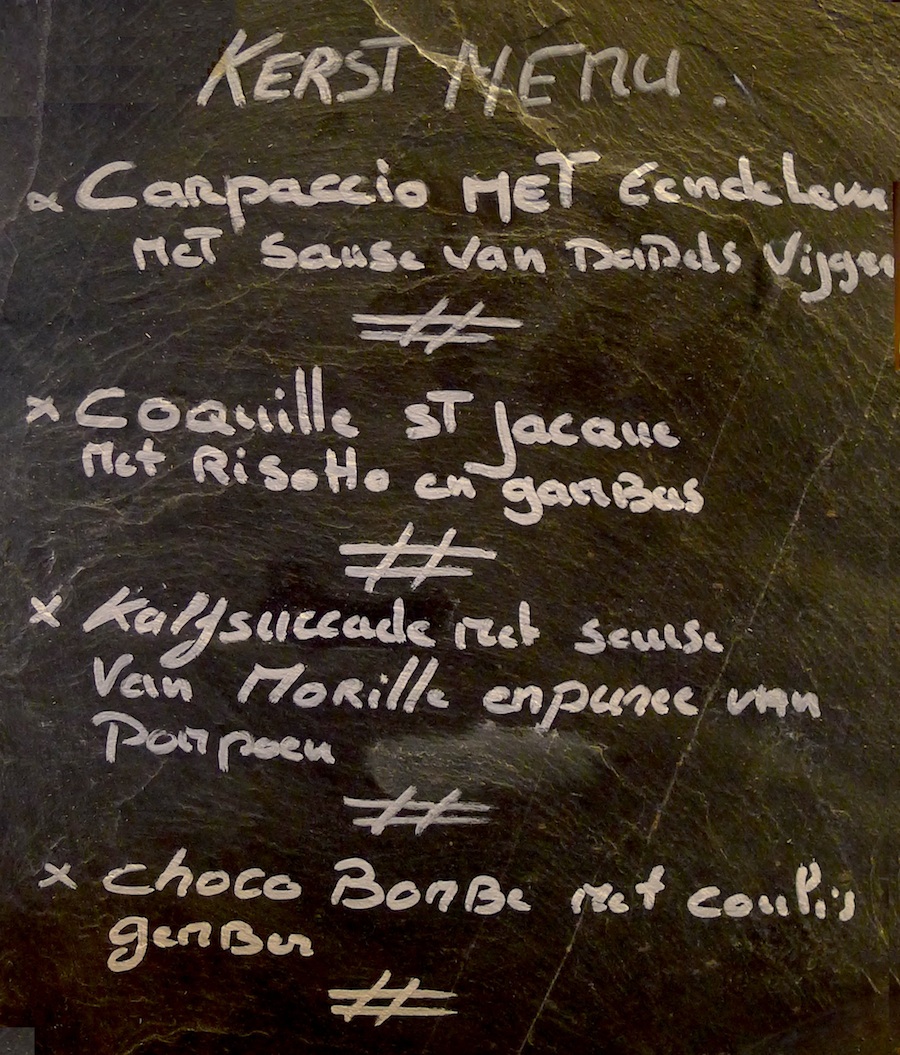 KERST MENU.
x Carpaccio MET Eendelever
MET Sause van DADELS Vijgen
#
x Coquille ST Jacque
Met RisoTTo en gamBas
#
x Kalfsuccade met sause
Van MoRille en puree van
Pompoen
#
x choco BomBe met coulis
gemBer
#